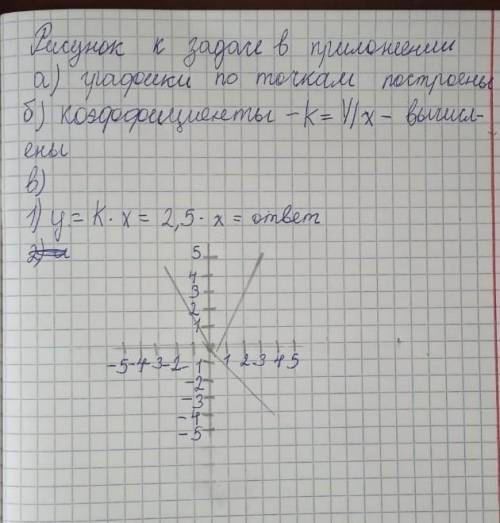 Рисунок к задаче в приложении
а) графики по точкам построены
б) коэффициенты - k = У/x - вычисл-
ены
в)
1) y = k · x = 2,5 · x = ответ
2)
5
4
3
2
1
-5 -4 -3 -2 1 1 2 3 4 5
-2
-3
-4
-5